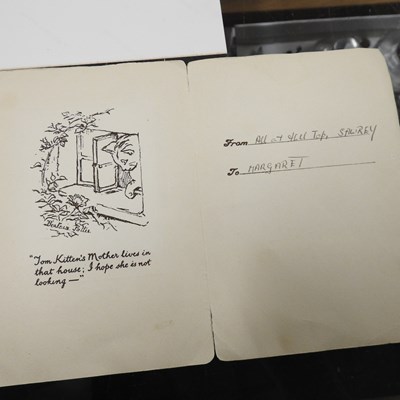 Beatrix Potter
"Tom Kitten's Mother lives in
that house; I hope she is not
looking —"
From All at Hill Top, SAWREY
To MARGARET